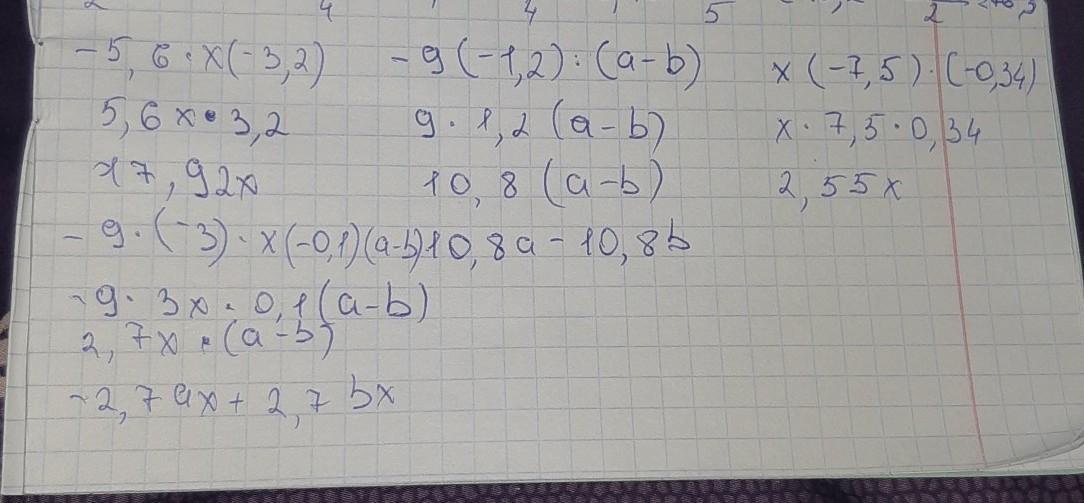 -5,6·x(-3,2) -9(-1,2):(a-b) x(-7,5)·(-0,34)
5,6x·3,2 9·1,2(a-b) x·7,5·0,34
17,92x 10,8(a-b) 2,55x
-9·(-3)·x(-0,1)(a-b) 10,8a-10,8b
-9·3x·0,1(a-b)
2,7x·(a-b)
-2,7ax+2,7bx